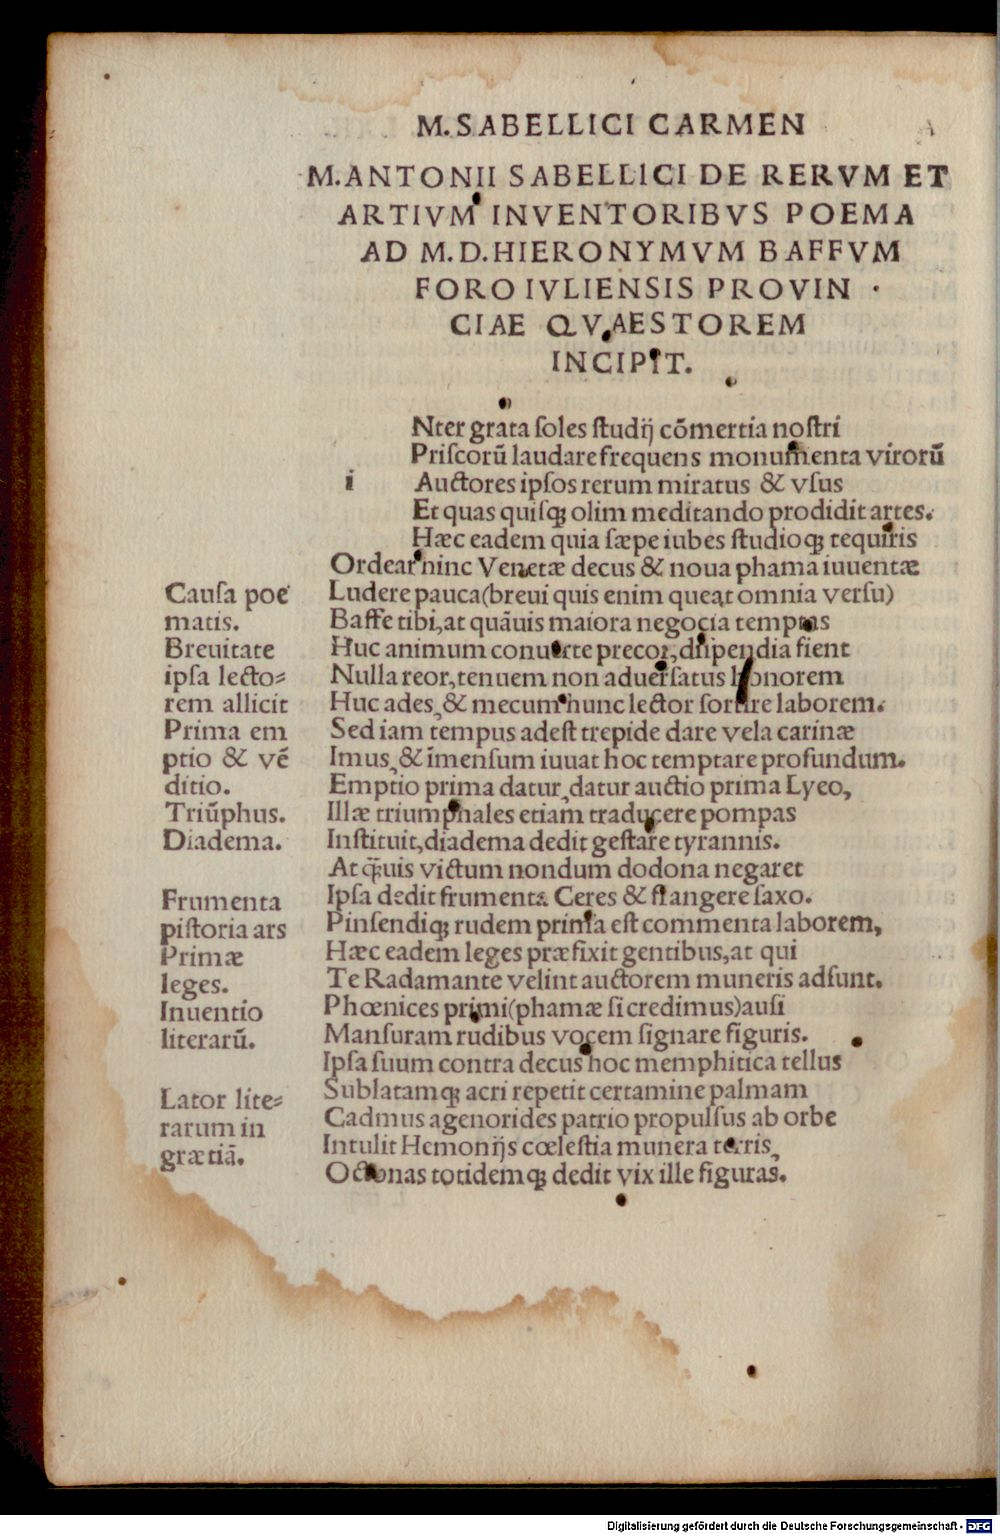 M. SABELLICI CARMEN
M. ANTONII SABELLICI DE RERVM ET
ARTIVM INVENTORIBVS POEMA
AD M. D. HIERONYMVM BAFFVM
FORO IVLIENSIS PROVIN ·
CIAE QVAESTOREM
INCIPIT.
i
Nter grata ſoles ſtudij cõmertia noſtri
Priſcorũ laudare frequens monumenta virorũ
Auctores ipſos rerum miratus & vſus
Et quas quiſqꝫ olim meditando prodidit artes.
Hæc eadem quia ſæpe iubes ſtudioqꝫ requiris
Ordear hinc Venetæ decus & noua phama iuuentæ
Ludere pauca(breui quis enim queat omnia verſu)
Baffe tibi, at quãuis maiora negocia temptas
Huc animum conuerte precor, diſpendia fient
Nulla reor, tenuem non aduerſatus honorem
Huc ades, & mecum nunc lector ſortire laborem.
Sed iam tempus adeſt trepide dare vela carinæ
Imus, & ĩmenſum iuuat hoc temptare profundum.
Emptio prima datur, datur auctio prima Lyeo,
Illæ triumphales etiam traducere pompas
Inſtituit, diadema dedit geſtare tyrannis.
At q̃uis victum nondum dodona negaret
Ipſa dedit frumenta Ceres & frangere ſaxo.
Pinſendiqꝫ rudem prima eſt commenta laborem,
Hæc eadem leges præfixit gentibus, at qui
Te Radamante velint auctorem muneris adſunt.
Phœnices primi(phamæ ſi credimus)auſi
Manſuram rudibus vocem ſignare figuris.
Ipſa ſuum contra decus hoc memphitica tellus
Sublatamqꝫ acri repetit certamine palmam
Cadmus agenorides patrio propulſus ab orbe
Intulit Hemonijs cœleſtia munera terris,
Octonas totidemqꝫ dedit vix ille figuras.
Cauſa poe
matis.
Breuitate
ipſa lecto⸗
rem allicit
Prima em
ptio & vẽ
ditio.
Triũphus.
Diadema.
Frumenta
piſtoria ars
Primæ
leges.
Inuentio
literarũ.
Lator lite⸗
rarum in
grætiã.
Digitalisierung gefördert durch die Deutsche Forschungsgemeinschaft - DFG